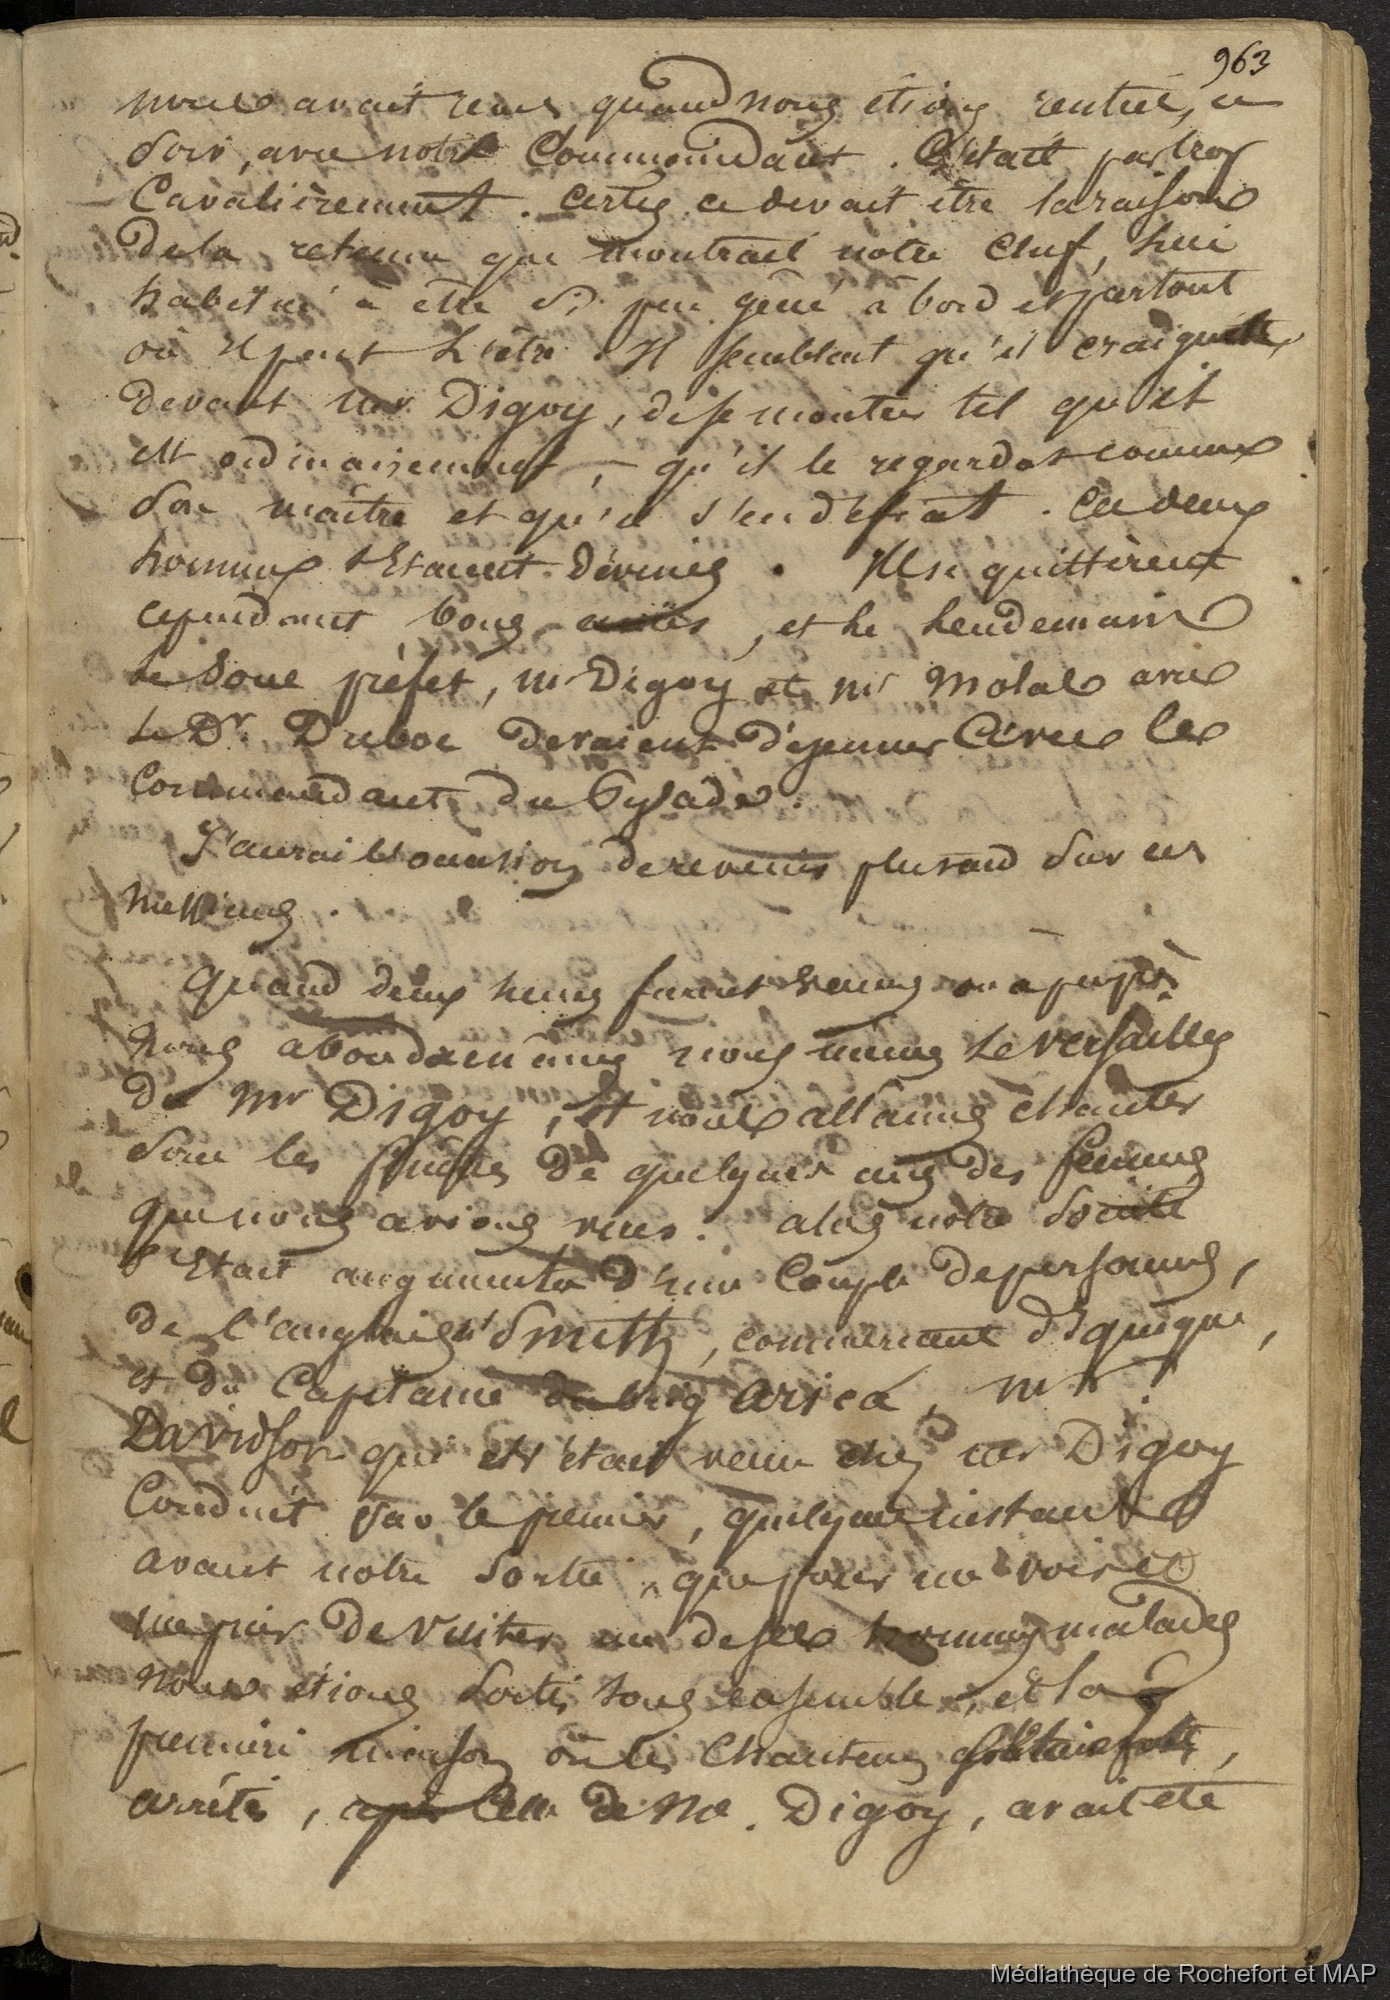 963
nous avait reçus quand nous étions rentrés, ce
soir, avec notre Commandant. C'était par trop
Cavalièrement. certes ce devait être la raison
de la retenue que montrait notre chef, lui
habitué à être si peu gêné à bord et partout
où il peut l'être. Il semblait qu'il craignit
devant mr Digoy, de se montrer tel qu'il
est ordinairement, qu'il le regardat comme
son maître et qu'il s'en défiat. Ces deux
hommes s'étaient devinés. Ils se quittèrent
cependant bons amis, et le lendemain
le Sous préfet, mr Digoy et mr Molal avec
le Dr. Duboc devaient déjeuner avec le
Commandant du Pylade.
J'aurai l'occasion de revenir plus tard sur ces
messieurs.
Quand deux heures furent venues ou à peu près
nous abandonnâmes nous mêmes le Versailles
de Mr Digoy, et nous allâmes chanter
sous les fenêtres de quelques unes des femmes
que nous avions vues. alors notre Société
s'était augmentée d'une Couple de personnes,
de l'anglais Smith, commerçant d'Iquique,
et du Capitaine du brig Arica, Mr
Davidson qui était venu chez mr Digoy
Conduit par le premier, quelques instants
avant notre Sortie, que pour me voir et
me prier de visiter un de ses hommes malades
nous étions sortis tous ensemble, et la
première maison où les Chanteurs
arrêtés, après Celle de Mr. Digoy, avait été
Médiathèque de Rochefort et MAP